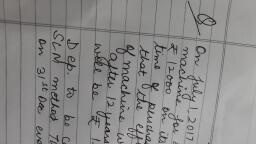 Q
On July 1 2017
machine for
₹ 12000 on its
time of purchas
that the eff
of machine w
after 12 years
will be ₹ 1
Dep to be c
SLM method Th
on 31st Dec eve